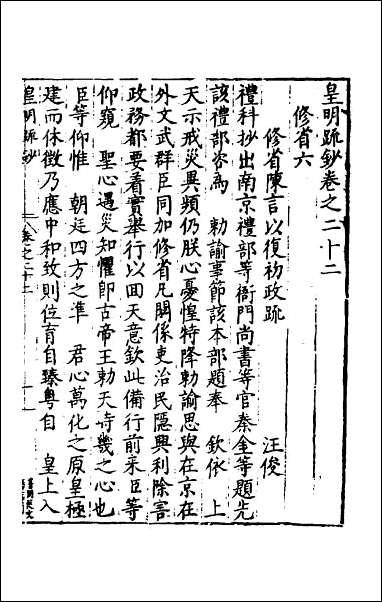 皇明疏鈔卷之二十二
修省六
修省陳言以復初政疏　汪俊
禮科抄出南京禮部等衙門尚書等官秦金等題先
該禮部咨為　勅諭事節該本部題奉　欽依　上
天示戒災異頻仍朕心憂惶特降勅諭思與在京在
外文武群臣同加修省凡關係吏治民隱興利除害
政務都要着實舉行以回天意欽此備行前来臣等
仰窺　聖心遇災知懼即古帝王勅天時幾之心也
臣等仰惟　朝廷四方之準　君心萬化之原皇極
建而休徵乃應中和致則位育自臻粤自　皇上入
皇明疏鈔　卷之二十二　一